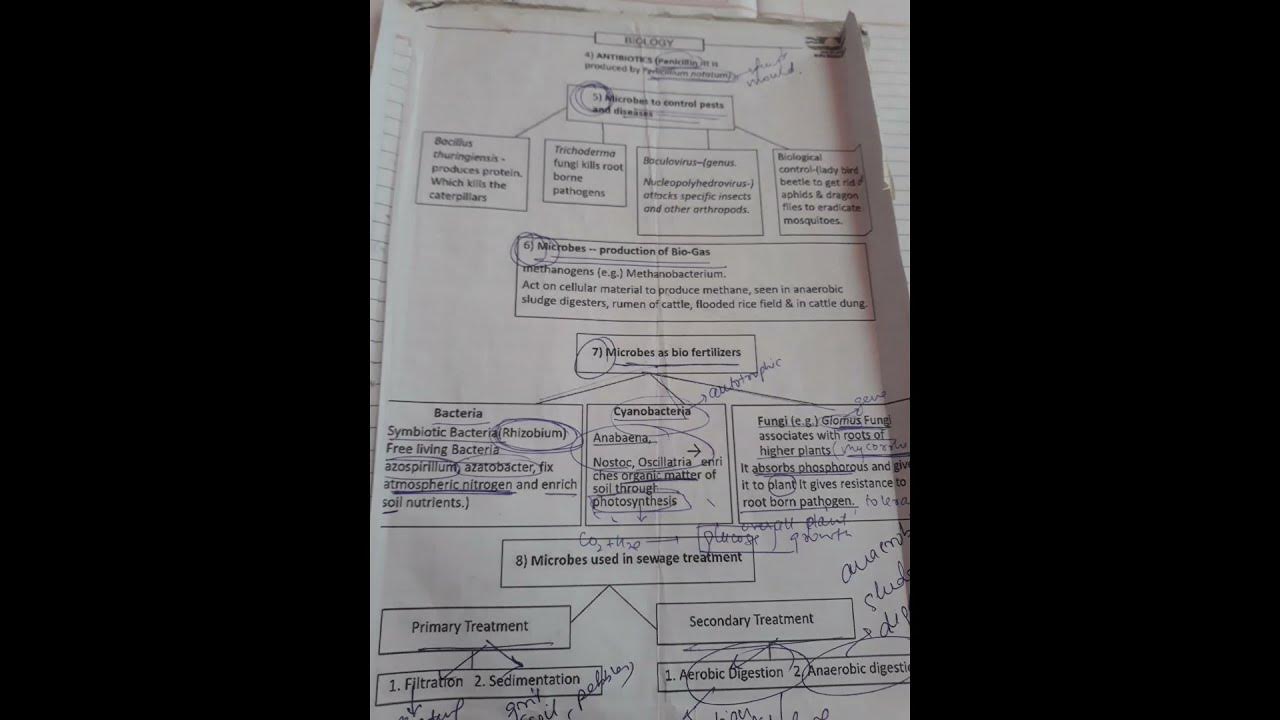 BIOLOGY
4) ANTIBIOTICS (Penicillin it is
produced by Penicillium notatum)
mould.
5) Microbes to control pests
and diseases
Bacillus
thuringiensis -
produces protein.
Which kills the
caterpillars
Trichoderma
fungi kills root
borne
pathogens
Baculovirus–(genus.
Nucleopolyhedrovirus-)
attacks specific insects
and other arthropods.
Biological
control-(lady bird
beetle to get rid
aphids & dragon
flies to eradicate
mosquitoes.
6) Microbes -- production of Bio-Gas
methanogens (e.g.) Methanobacterium.
Act on cellular material to produce methane, seen in anaerobic
sludge digesters, rumen of cattle, flooded rice field & in cattle dung.
7) Microbes as bio fertilizers
autotrophic
Bacteria
Symbiotic Bacteria(Rhizobium)
Free living Bacteria
azospirillum, azatobacter, fix
atmospheric nitrogen and enrich
soil nutrients.)
Cyanobacteria
Anabaena,
Nostoc, Oscillatria enri
ches organic matter of
soil through
photosynthesis
Fungi (e.g.) Glomus Fungi
associates with roots of
higher plants
It absorbs phosphorous and give
it to plant It gives resistance to
root born pathogen.
overall plant
growth
CO2 + H2O → glucose
8) Microbes used in sewage treatment
Primary Treatment
1. Filtration 2. Sedimentation
Secondary Treatment
1. Aerobic Digestion 2. Anaerobic digestio
grit
pebbles)